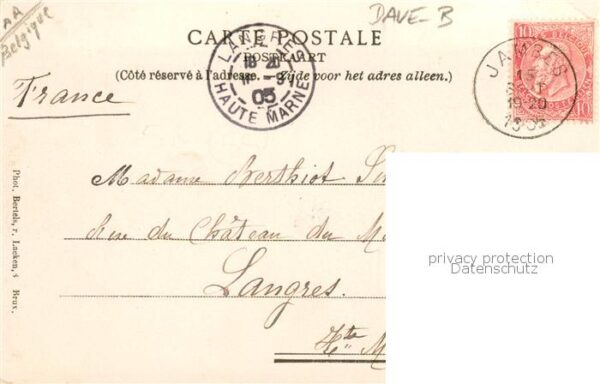 AA
Belgique
DAVE-B
CARTE POSTALE
POSTKAART
(Côté réservé à l'adresse. — Zijde voor het adres alleen.)
France
LANGRES
18 20
11 - 9
05
HAUTE MARNE
10
JAMBES
19-20
1905
Madame Berthiot
Rue du Château du
Langres.
Hte M
Phot. Bertels, r. Laeken, Brux.
privacy protection
Datenschutz